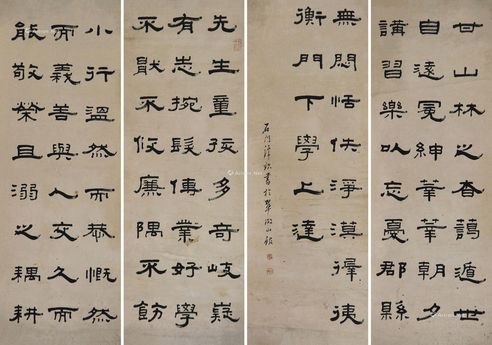 甘山林之杳藹遁世
自遠冕紳莘莘朝夕
講習樂以忘憂郡縣
無悶恬佚淨漠徲徥
衡門下學上達
石門書於山館
先生童孩多奇岐嶷
有志捥髮傳業好學
不猒不攸廉隅不飭
小行溫然而恭慨然
而義善與人交久而
能敬榮且溺之耦耕